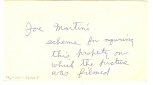 Joe Martin's
scheme for acquiring
this property on
which the picture
was filmed